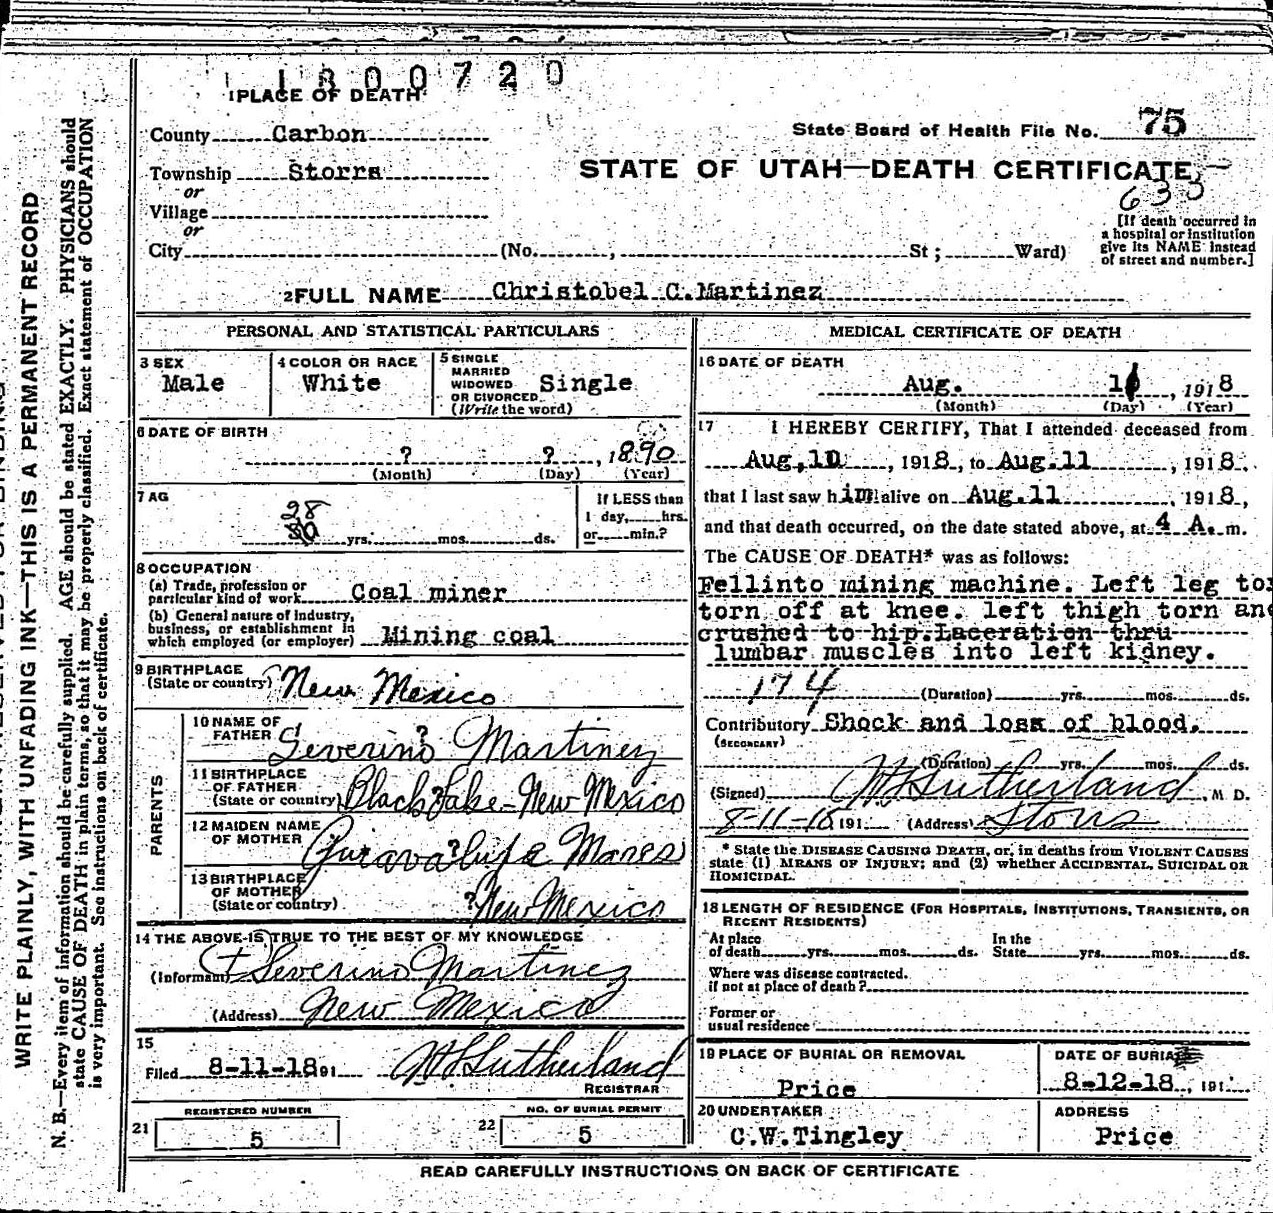 1800720
1 PLACE OF DEATH
County Carbon
State Board of Health File No. 75
Township Storrs
STATE OF UTAH—DEATH CERTIFICATE
633
or
Village
or
City (No. , St ; Ward)
[If death occurred in
a hospital or institution
give its NAME instead
of street and number.]
2 FULL NAME Christobel C.Martinez
PERSONAL AND STATISTICAL PARTICULARS
3 SEX
Male
4 COLOR OR RACE
White
5 SINGLE
MARRIED
WIDOWED
OR DIVORCED
(Write the word)
Single
6 DATE OF BIRTH
? ? , 1890
(Month) (Day) (Year)
7 AG
28
30 yrs. mos. ds.
If LESS than
1 day, hrs.
or min.?
8 OCCUPATION
(a) Trade, profession or
particular kind of work Coal miner
(b) General nature of industry,
business, or establishment in
which employed (or employer) Mining coal
9 BIRTHPLACE
(State or country) New Mexico
PARENTS
10 NAME OF
FATHER ? Severino Martinez
11 BIRTHPLACE
OF FATHER
(State or country) ? Black Lake - New Mexico
12 MAIDEN NAME
OF MOTHER ? Mares
13 BIRTHPLACE
OF MOTHER
(State or country) ? New Mexico
14 THE ABOVE IS TRUE TO THE BEST OF MY KNOWLEDGE
(Informant) Severino Martinez
(Address) New Mexico
15
Filed 8-11-18 191 W Sutherland
REGISTRAR
21 REGISTERED NUMBER
5
22 NO. OF BURIAL PERMIT
5
MEDICAL CERTIFICATE OF DEATH
16 DATE OF DEATH
Aug. 11 , 1918
(Month) (Day) (Year)
17 I HEREBY CERTIFY, That I attended deceased from
Aug,10 , 1918, to Aug.11 , 1918,
that I last saw him alive on Aug.11 , 1918,
and that death occurred, on the date stated above, at 4 A. m.
The CAUSE OF DEATH* was as follows:
Fellinto mining machine. Left leg to
torn off at knee. left thigh torn and
crushed to hip.Laceration thru
lumbar muscles into left kidney.
174 (Duration) yrs. mos. ds.
Contributory Shock and loss of blood.
(SECONDARY)
(Duration) yrs. mos. ds.
(Signed) W Sutherland, M D.
8-11-18 191 (Address) Storrs
* State the DISEASE CAUSING DEATH, or, in deaths from VIOLENT CAUSES
state (1) MEANS OF INJURY; and (2) whether ACCIDENTAL, SUICIDAL OR
HOMICIDAL.
18 LENGTH OF RESIDENCE (FOR HOSPITALS, INSTITUTIONS, TRANSIENTS, OR
RECENT RESIDENTS)
At place
of death yrs. mos. ds.
In the
State yrs. mos. ds.
Where was disease contracted,
if not at place of death?
Former or
usual residence
19 PLACE OF BURIAL OR REMOVAL
Price
DATE OF BURIAL
8-12-18 , 191
20 UNDERTAKER
C.W.Tingley
ADDRESS
Price
READ CAREFULLY INSTRUCTIONS ON BACK OF CERTIFICATE
WRITE PLAINLY, WITH UNFADING INK—THIS IS A PERMANENT RECORD
N. B.—Every item of information should be carefully supplied. AGE should be stated EXACTLY. PHYSICIANS should
state CAUSE OF DEATH in plain terms, so that it may be properly classified. Exact statement of OCCUPATION
is very important. See instructions on back of certificate.